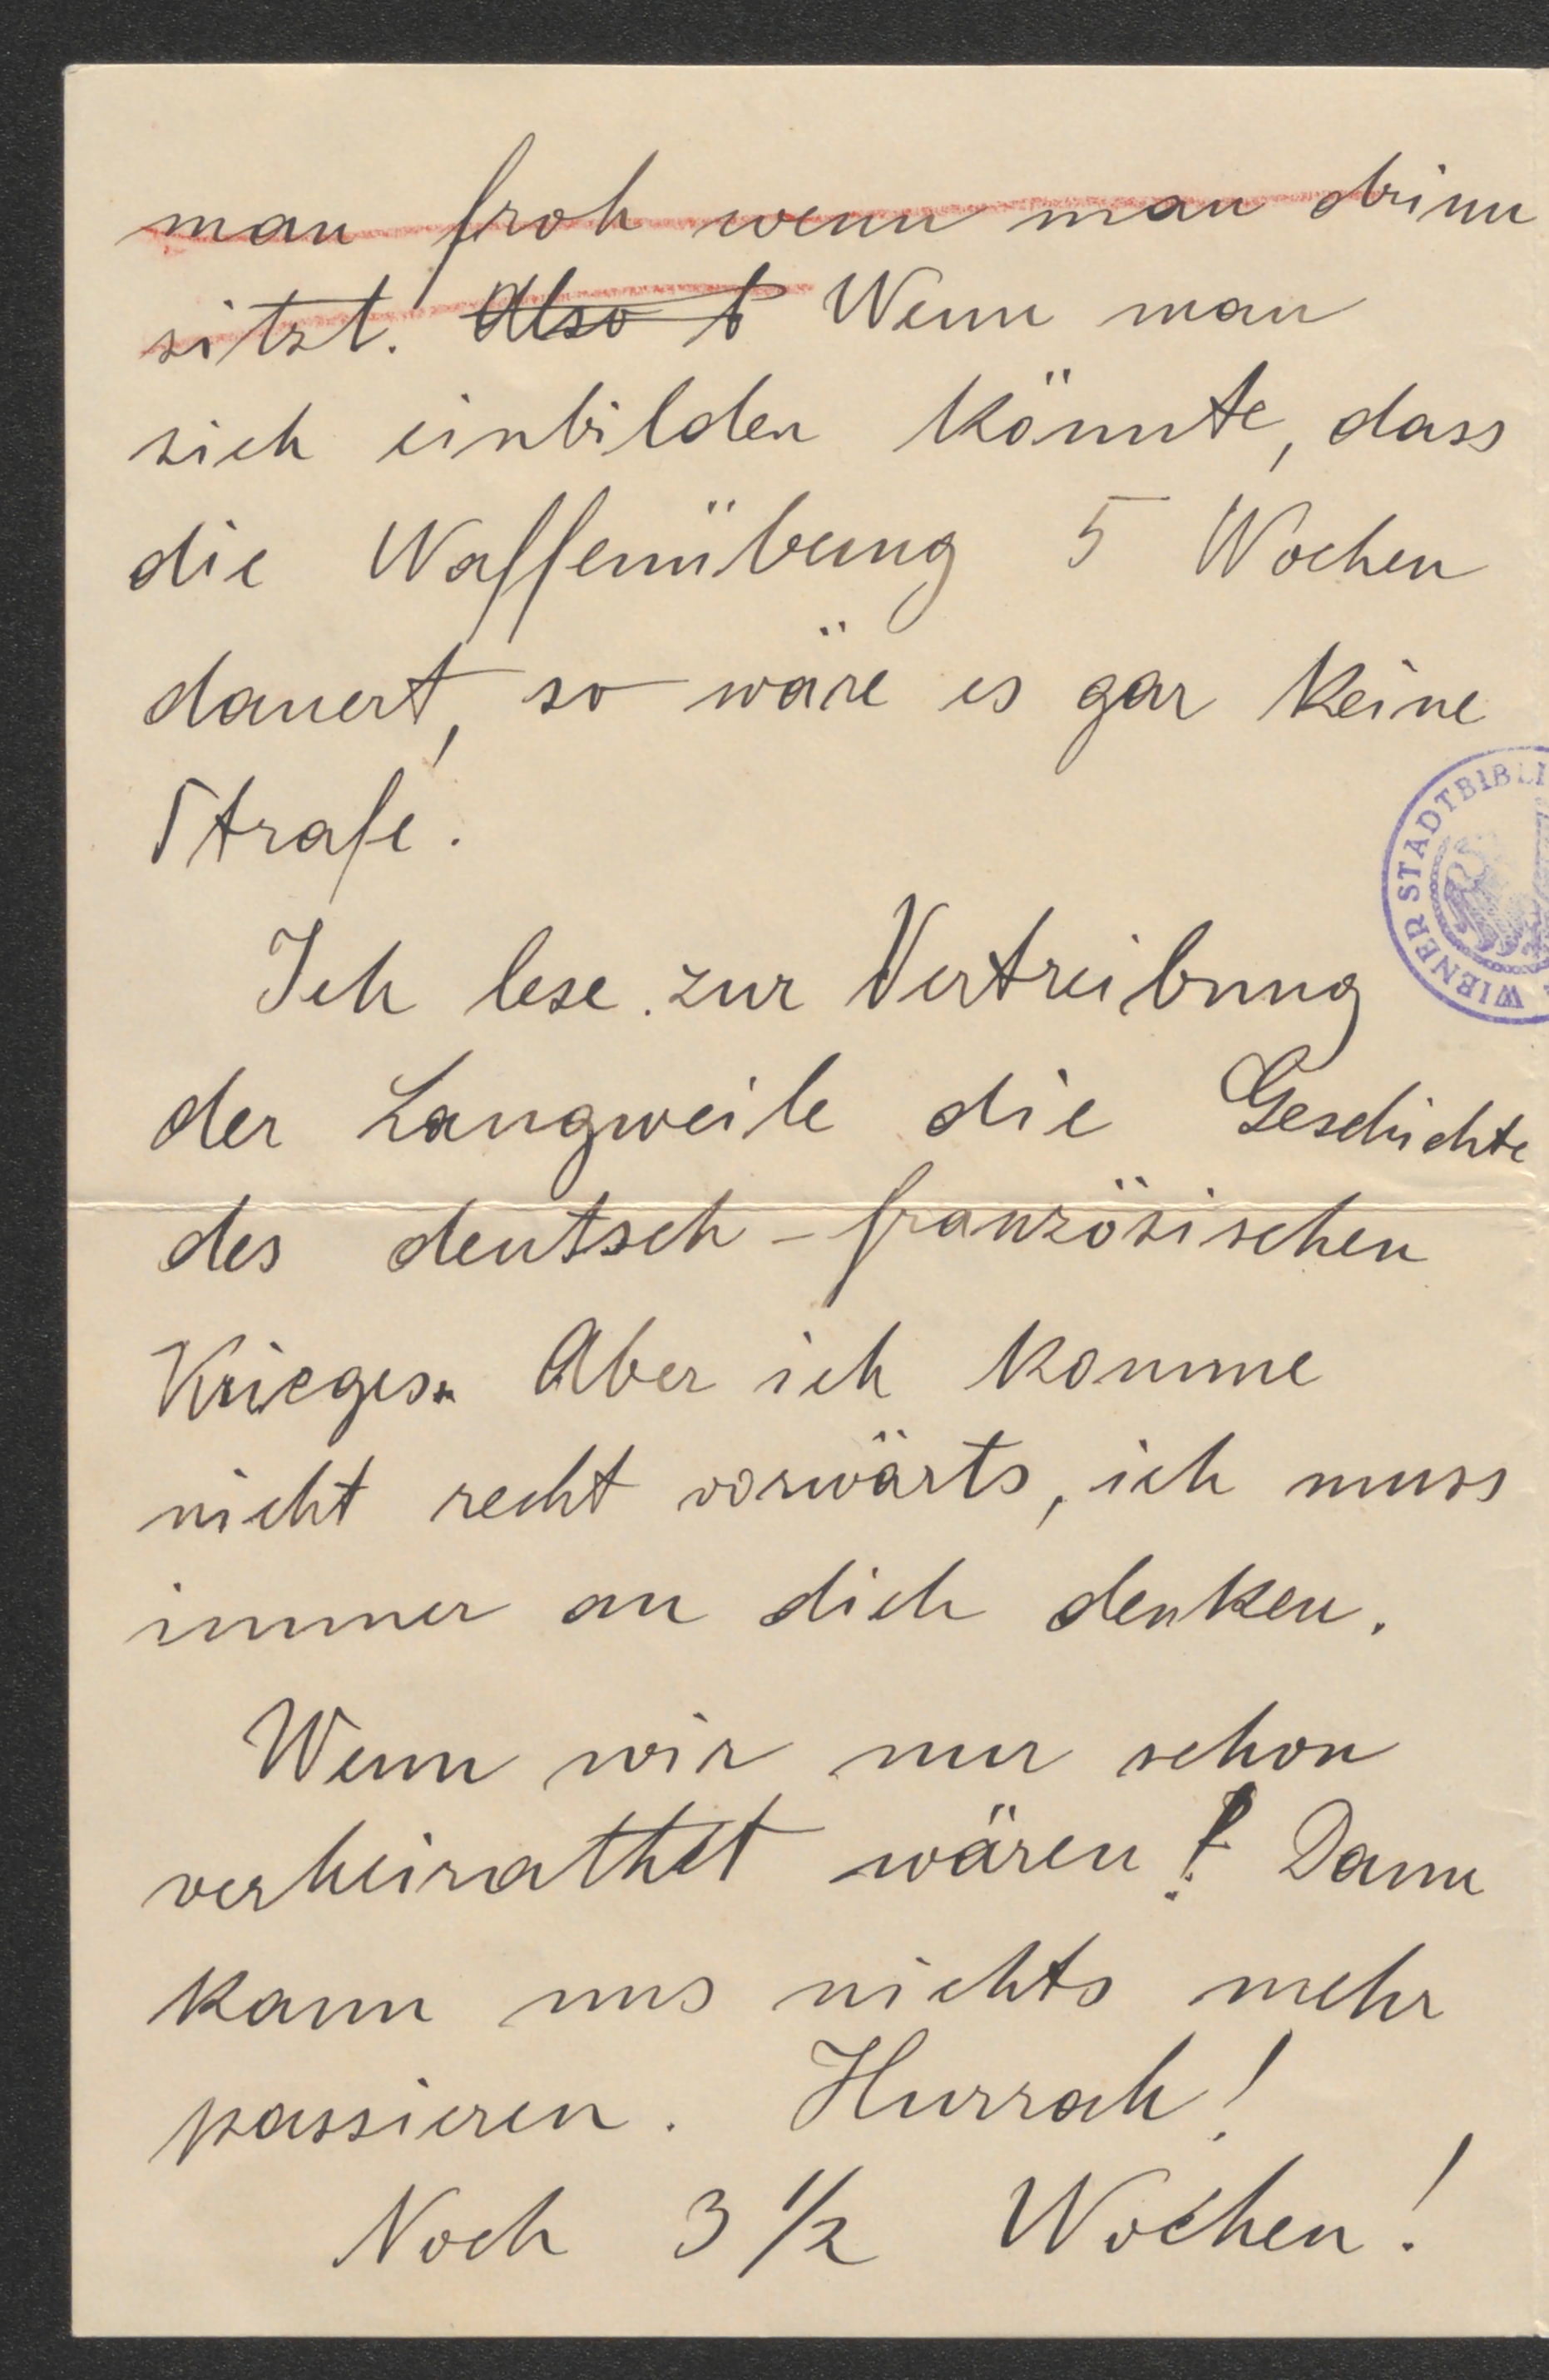 man froh wenn man drinn
sitzt. Also b Wenn man
sich einbilden könnte, dass
die Waffenübung 5 Wochen
dauert, so wäre es gar keine
Strafe.
Ich lese zur Vertreibung
der Langweile die Geschichte
des deutsch-französischen
Krieges. Aber ich komme
nicht recht vorwärts, ich muss
immer an dich denken.
Wenn wir nur schon
verheirathet wären! Dann
kann uns nichts mehr
passieren. Hurrah!
Noch 3 1/2 Wochen!
WIENER STADTBIBLI